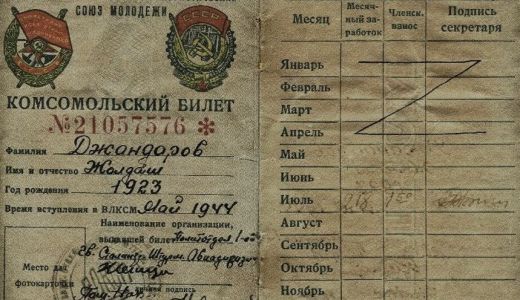 СОЮЗ МОЛОДЕЖИ
СССР
КОМСОМОЛЬСКИЙ БИЛЕТ
№21057576 *
Фамилия Джандаров
Имя и отчество Жолдаш
Год рождения 1923
Время вступления в ВЛКСМ Май 1944
Наименование организации,
выдавшей билет Политотдел
Гв. Сталингр. Штурм. Авиадивизии
Место для
фотокарточки
личная подпись
Месяц
Месячный заработок
Членск. взнос
Подпись секретаря
Январь
Февраль
Март
Апрель
Май
Июнь
Июль
Август
Сентябрь
Октябрь
Ноябрь